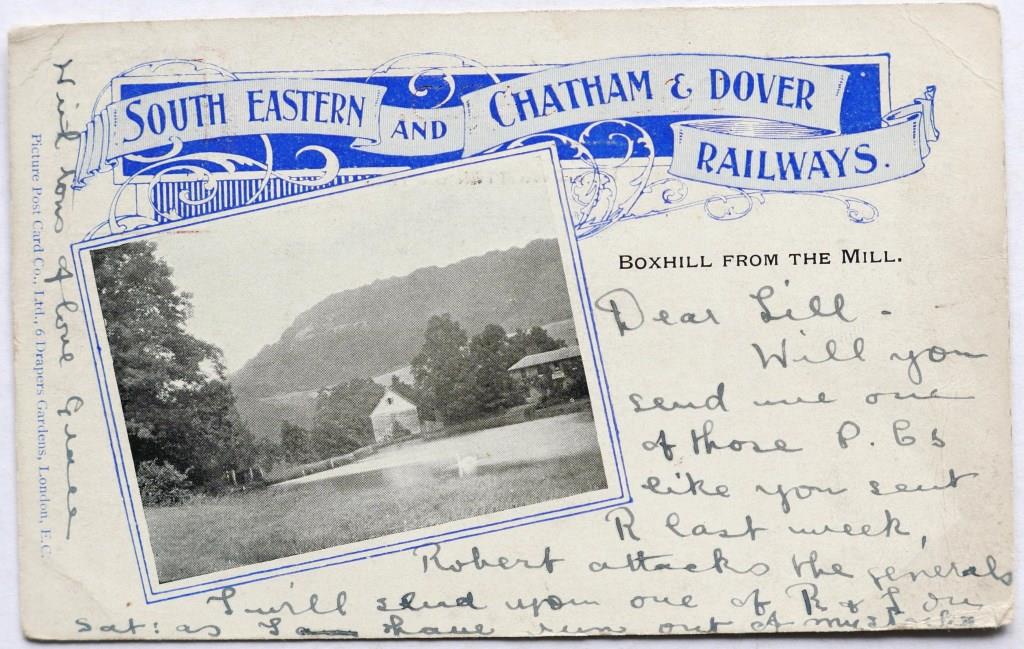 SOUTH EASTERN AND CHATHAM & DOVER
RAILWAYS.
BOXHILL FROM THE MILL.
Dear Lill -
Will you
send me one
of those P. Cs
like you sent
R last week,
Robert attacks the generals
I will send you one of R & I on
Sat: as I have run out of
Kind love
Grace
Picture Post Card Co., Ltd., 6 Drapers Gardens, London, E.C.